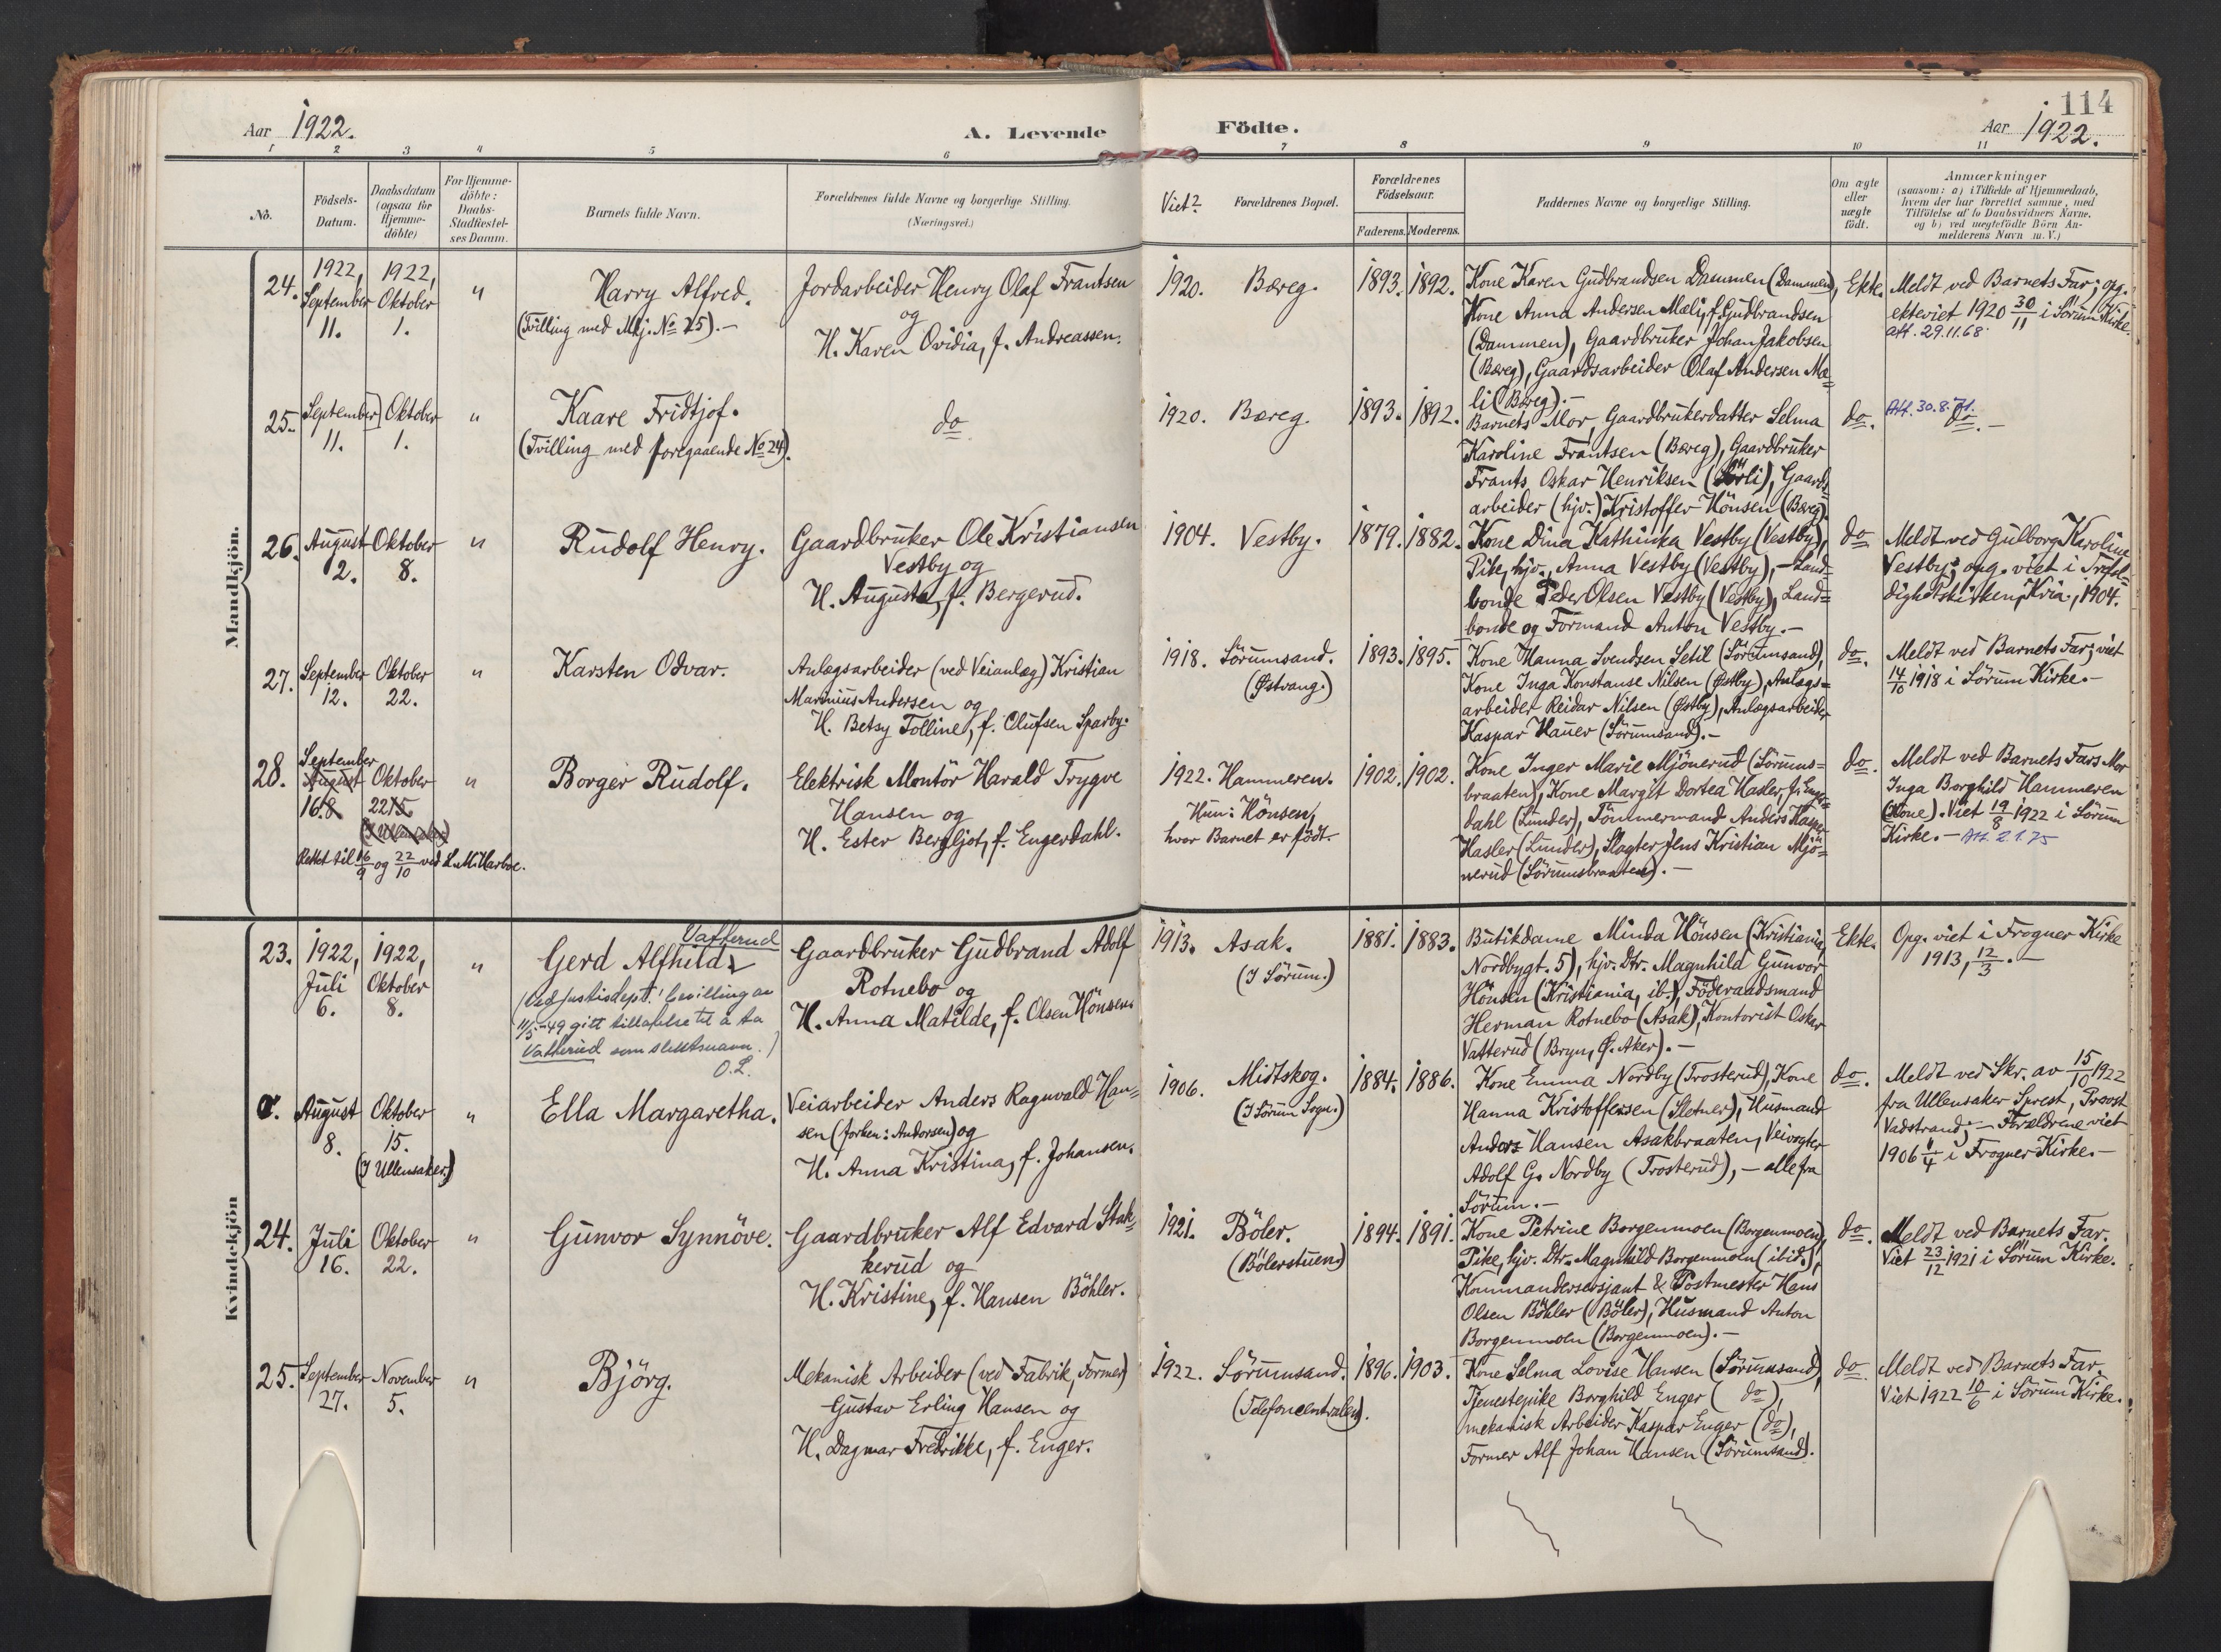 114
Aar 1922.
A. Levende
Födte.
Aar 1922.
1 2 3 4 5 6 7 8 9 10 11
No.
Födsels-
Datum.
Daabsdatum
(ogsaa for
Hjemme-
döbte)
For Hjemme-
döbte:
Daabs-
Stadfæstel-
ses Datum.
Barnets fulde Navn.
Forældrenes fulde Navne og borgerlige Stilling.
(Næringsvei.)
Viet?
Forældrenes Bopæl.
Forældrenes
Födselsaar.
Faderens.
Moderens.
Faddernes Navne og borgerlige Stilling.
Om ægte
eller
uægte
födt.
Anmærkninger
(saasom: a) i Tilfælde af Hjemmedaab,
hvem der har forrettet samme, med
Tilföielse af to Daabsvidners Navne,
og b) ved uægtefödte Börn An-
melderens Navn m. V.)
Mandkjön.
24.
1922,
September
11.
1922,
Oktober
1.
"
Harry Alfred.
(Tvilling med Mkj. No 25).-
Jordarbeider Henry Olaf Frantsen
og
H. Karen Ovidia, f. Andreassen.
1920.
Bæreg.
1893.
1892.
Kone Karen Gudbrandsen Dammen (Dammen),
Kone Anna Andersen Mæli, f. Gudbrandsen
(Dammen), Gaardbruker Johan Jakobsen
(Bæreg), Gaardsarbeider Olaf Andersen Mæ=
li (Bæreg).-
Ekte.
Meldt ved Barnets Far; opg.
ekteviet 1920 30/11 i Sörum Kirke.
att. 29.11.68
25.
September
11.
Oktober
1.
"
Kaare Fridtjof.
(Tvilling med foregaaende No 24).
do.
1920.
Bæreg.
1893.
1892.
Barnets Mor, Gaardbrukerdatter Selma
Karoline Frantsen (Bæreg), Gaardbruker
Frants Oskar Henriksen (Sörli), Gaards=
arbeider (hjv.) Kristoffer Hönsen (Bæreg).
do.
Att. 30.8.71.
do.-
26.
August
2.
Oktober
8.
"
Rudolf Henry.
Gaardbruker Ole Kristiansen
Vestby og
H. Augusta, f. Bergerud.
1904.
Vestby.
1879.
1882.
Kone Dina Kathinka Vestby (Vestby),
Pike, hjv., Anna Vestby (Vestby),- Land=
bonde Peder Olsen Vestby (Vestby), Land=
bonde og Formand Anton Vestby.-
do
Meldt ved Gulborg Karoline
Vestby; opg. viet i Trefol=
dighetskirken, Kria, 1904.
27.
September
12.
Oktober
22.
"
Karsten Odvar.
Anlægsarbeider (ved Veianlæg) Kristian
Marinius Andersen og
H. Betsy Tolline, f. Olufsen Sparby.
1918.
Sörumsand.
(Østvang.)
1893.
1895.
Kone Hanna Svendsen Setil (Sörumsand),
Kone Inga Konstanse Nilsen (Østby), Anlags=
arbeider Reidar Nilsen (Østby), Anlægsarbeider
Kaspar Hauer (Sörumsand).-
do.
Meldt ved Barnets Far; viet
14/10 1918 i Sörum Kirke.-
28.
September
August
16. 8
Oktober
22 15
Rettet til 16/9 og 22/10 ved L. M. Harboe.
"
Borger Rudolf.
Elektrisk Montör Harald Trygve
Hansen og
H. Ester Bergljot, f. Engerdahl.
1922.
Hammeren.
Hun: Hönsen,
hvor Barnet er födt.
1902.
1902.
Kone Inger Marie Mjönerud (Sörums=
braaten), Kone Margit Dortea Hasler, f. Enger=
dahl (Lunder), Tömmermand Anders
Hasler (Lunder), Slagter Jens Kristian Mjö=
nerud (Sörumsbraaten).-
do.
Meldt ved Barnets Fars Mor
Inga Borghild Hammeren
(Kone). Viet 19/8 1922 i Sörum
Kirke.- Att. 2.1.75
Kvindekjön
23.
1922,
Juli
6.
1922,
Oktober
8.
"
Vatterud
Gerd Alfhild
(Ved Justisdept.' bevilling av
11/5-49 gitt tillatelse til å ta
Vatterud som slektsnavn.)
O.L.
Gaardbruker Gudbrand Adolf
Rotnebo og
H. Anna Matilde, f. Olsen Hönsen.
1913.
Asak.
(I Sörum.)
1881.
1883.
Butikdame Minda Hönsen (Kristiania,
Nordbygt. 5), hjv. Dtr. Magnhild Gunvor
Hönsen (Kristiania, ib.), Föderaadsmand
Herman Rotnebo (Asak), Kontorist Oskar
Vatterud (Bryn, Ø. Aker).-
Ekte.
Opg. viet i Frogner Kirke
1913, 12/3.-
August
8.
Oktober
15.
(I Ullensaker.)
"
Ella Margaretha.
Veiarbeider Anders Ragnvald Han=
sen (forhen: Andersen) og
H. Anna Kristina, f. Johansen.
1906.
Midtskog.
(I Sörum Sogn.)
1884.
1886.
Kone Emma Nordby (Trosterud), Kone
Hanna Kristoffersen (Sletner), Husmand
Anders Hansen Asakbraaten, Veivogter
Adolf G. Nordby (Trosterud),- alle fra
Sörum.-
do.
Meldt ved Skr. av 15/10 1922
fra Ullensaker Sprest, Provst
Vadstrand;- Forældrene viet
1906 4/4 i Frogner Kirke.-
24.
Juli
16.
Oktober
22.
"
Gunvor Synnöve.
Gaardbruker Alf Edvard Stak=
kerud og
H. Kristine, f. Hansen Böhler.
1921.
Böler.
(Bölerstuen)
1894.
1891.
Kone Petrine Borgenmoen (Borgenmoen),
Pike, hjv. Dtr. Magnhild Borgenmoen (ibid.),
Kommandersersjant & Postmester Hans
Olsen Böhler (Böler), Husmand Anton
Borgenmoen (Borgenmoen).-
do.
Meldt ved Barnets Far.
Viet 23/12 1921 i Sörum Kirke.
25.
September
27.
November
5.
"
Björg.
Mekanisk Arbeider (ved Fabrik, Former)
Gustav Erling Hansen og
H. Dagmar Fredrikke, f. Enger.
1922.
Sörumsand.
(Telefoncentralen).
1896.
1903.
Kone Selma Lovise Hansen (Sörumsand),
Tjenestepike Borghild Enger (do),
mekanisk Arbeider Kaspar Enger (do),
Former Alf Johan Hansen (Sörumsand).
do.
Meldt ved Barnets Far.
Viet 1922 10/6 i Sörum Kirke.